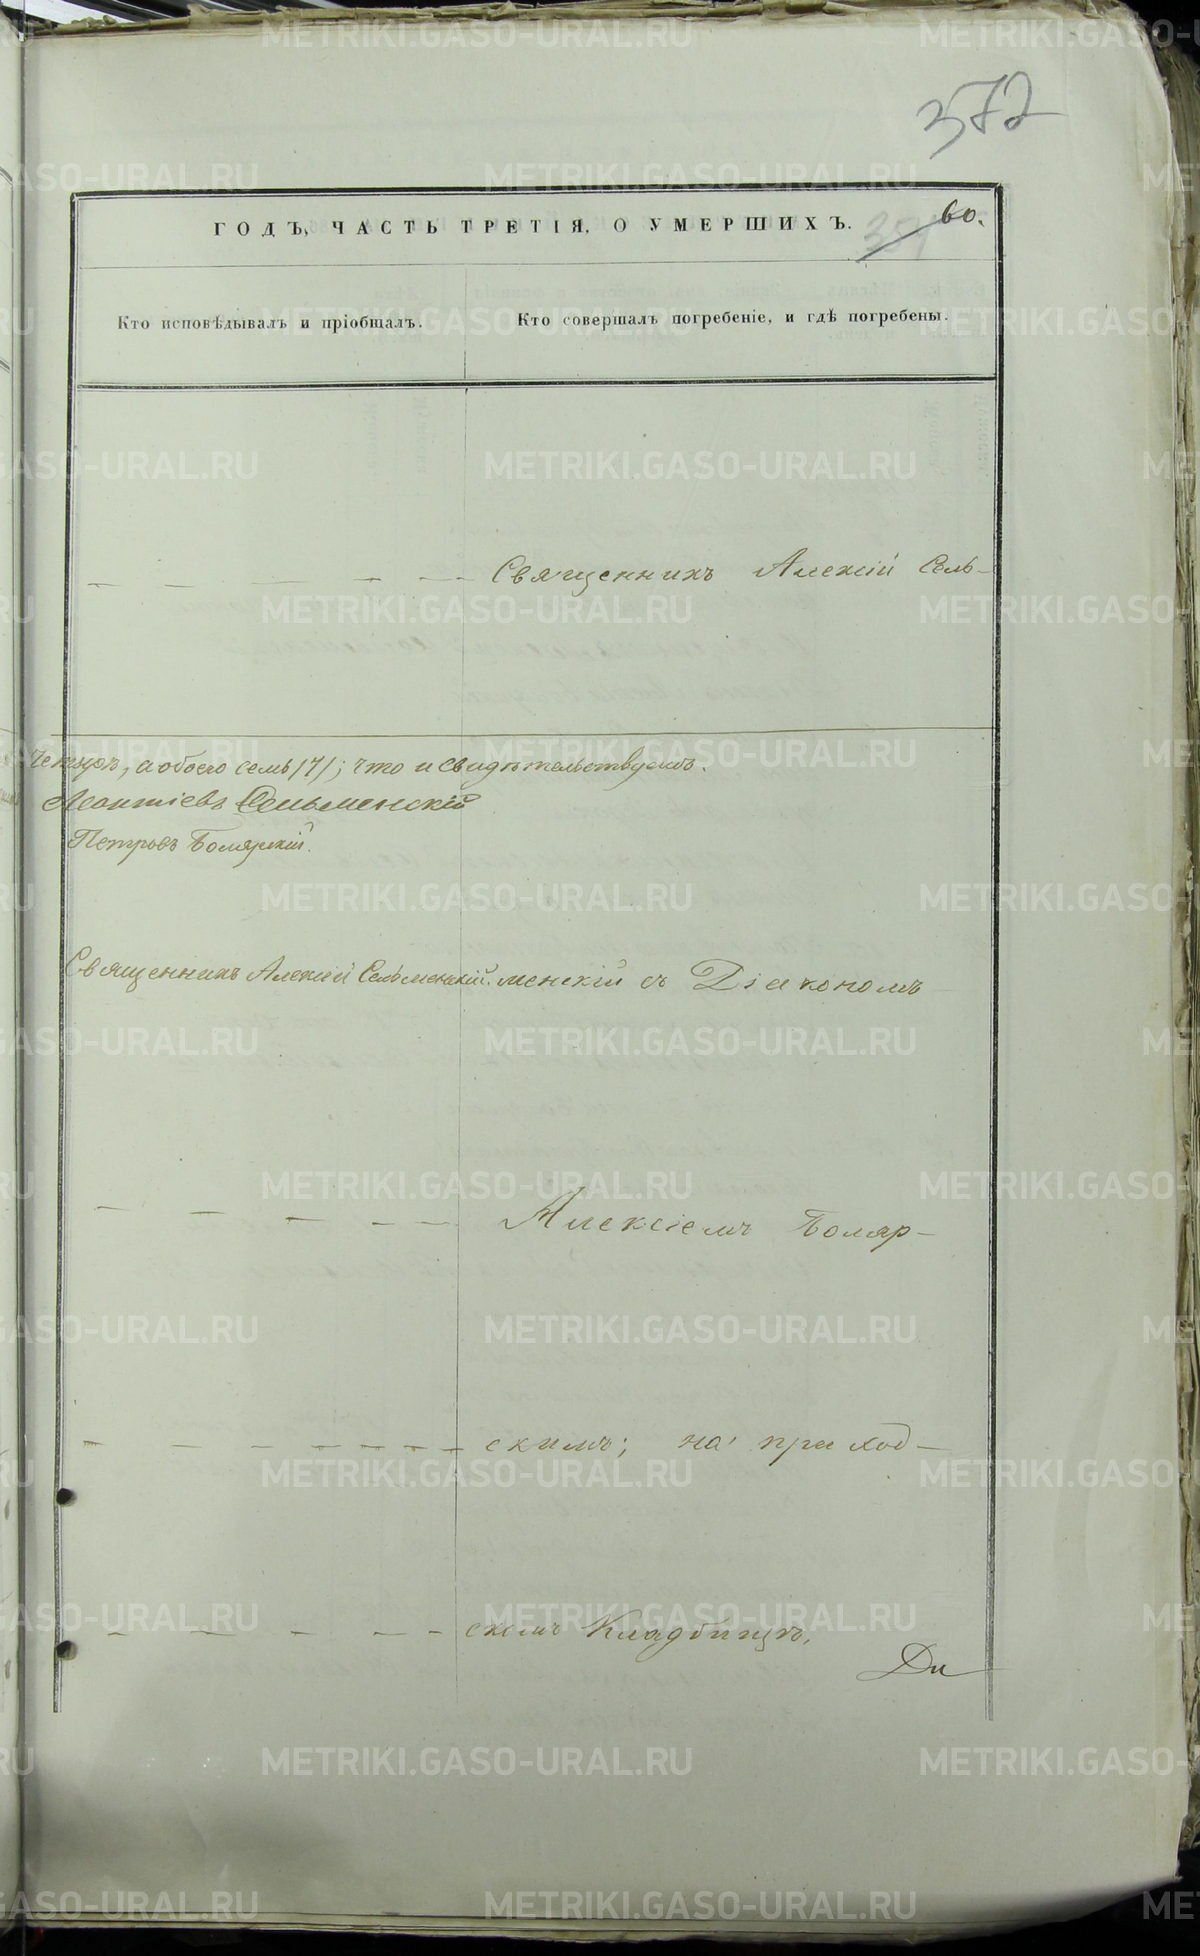 372
60.
ГОДЪ, ЧАСТЬ ТРЕТІЯ, О УМЕРШИХЪ.
Кто исповѣдывалъ и пріобщалъ.
Кто совершалъ погребеніе, и гдѣ погребены.
Священникъ Алексій Сель-
а обоего семь /7/; что и свидѣтельствуемъ.
Леонтіевъ Сельменскій
Петровъ Боярскій.
Священникъ Алексій Сельменскій. менскій съ Діакономъ
Алексіемъ Бояр-
скимъ; на приход-
скомъ Кладбищѣ.
METRIKI.GASO-URAL.RU